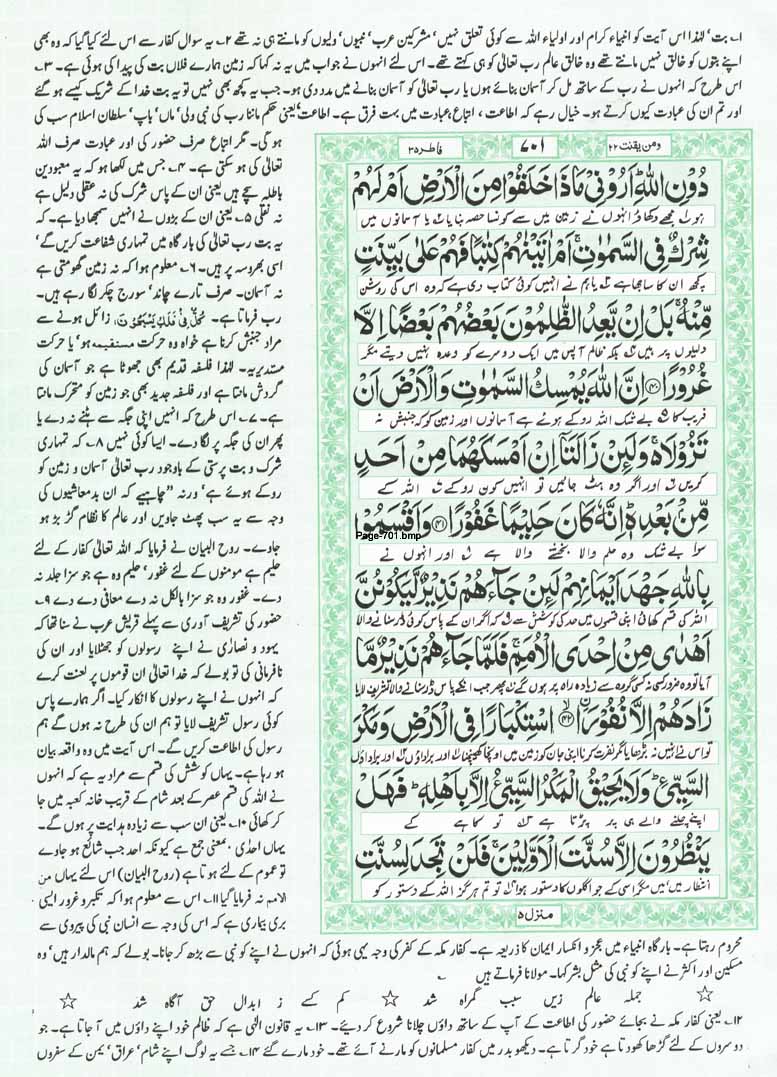 ۱؎ بت‘ لہٰذا اس آیت کو انبیاء کرام اور اولیاء اللہ سے کوئی تعلق نہیں‘ مشرکین عرب‘ نبیوں‘ ولیوں کو مانتے ہی نہ تھے ۲؎ یہ سوال کفار سے اس لئے کیا گیا کہ وہ بھی
اپنے بتوں کو خالق نہیں مانتے تھے وہ خالق عالم رب تعالٰی کو ہی کہتے تھے۔ اس لئے انہوں نے جواب میں یہ نہ کہا کہ زمین ہمارے فلاں بت کی پیدا کی ہوئی ہے۔ ۳؎
اس طرح کہ انہوں نے رب کے ساتھ مل کر آسمان بنائے ہوں یا رب تعالٰی کو آسمان بنانے میں مدد دی ہو۔ جب یہ کچھ بھی نہیں تو یہ بت خدا کے شریک کیسے ہو گئے
اور تم ان کی عبادت کیوں کرتے ہو۔ خیال رہے کہ اطاعت ‘ اتباع‘ عبادت میں بہت فرق ہے۔ اطاعت‘ یعنی حکم ماننا رب کی نبی ولی‘ ماں‘ باپ‘ سلطان اسلام سب کی
ومن یقنت ۲۲
۷۰۱
فاطر ۳۵
دُوۡنِ اللّٰہِ اَرُوۡنِیۡ مَاذَا خَلَقُوۡا مِنَ الۡاَرۡضِ اَمۡ لَہُمۡ
ہو ۱؎ مجھے دکھاؤ انہوں نے زمین میں سے کونسا حصہ بنایا ۲؎ یا آسمانوں میں
شِرۡکٌ فِی السَّمٰوٰتِ اَمۡ اٰتَیۡنٰہُمۡ کِتٰبًا فَہُمۡ عَلٰی بَیِّنَتٍ
کچھ ان کا ساجھا ہے ۳؎ یا ہم نے انہیں کوئی کتاب دی ہے کہ وہ اس کی روشن
مِّنۡہُ بَلۡ اِنۡ یَّعِدُ الظّٰلِمُوۡنَ بَعۡضُہُمۡ بَعۡضًا اِلَّا
دلیلوں پر ہیں ۴؎ بلکہ ظالم آپس میں ایک دوسرے کو وعدہ نہیں دیتے مگر
غُرُوۡرًا ﴿۴۰﴾ اِنَّ اللّٰہَ یُمۡسِکُ السَّمٰوٰتِ وَالۡاَرۡضَ اَنۡ
فریب کا ۵؎ بے شک اللہ روکے ہوئے ہے آسمانوں اور زمین کو کہ جنبش نہ
تَزُوۡلَا وَلَئِنۡ زَالَتَاۤ اِنۡ اَمۡسَکَہُمَا مِنۡ اَحَدٍ
کریں ۶؎ اور اگر وہ ہٹ جائیں تو انہیں کون روکے ۷؎ اللہ کے
مِّنۡۢ بَعۡدِہٖ اِنَّہٗ کَانَ حَلِیۡمًا غَفُوۡرًا ﴿۴۱﴾ وَاَقۡسَمُوۡا
Page-701.bmp
سوا بے شک وہ حلم والا بخشنے والا ہے ۸؎ اور انہوں نے
بِاللّٰہِ جَہۡدَ اَیۡمَانِہِمۡ لَئِنۡ جَآءَہُمۡ نَذِیۡرٌ لَّیَکُوۡنُنَّ
اللہ کی قسم کھائی اپنی قسموں میں حد کی کوشش سے ۹؎ کہ اگر ان کے پاس کوئی ڈر سنانے والا
اَہۡدٰی مِنۡ اِحۡدَی الۡاُمَمِ فَلَمَّا جَآءَہُمۡ نَذِیۡرٌ مَّا
آیا تو وہ ضرور کسی نہ کسی گروہ سے زیادہ راہ پر ہوں گے ۱۰؎ پھر جب انکے پاس ڈر سنانے والا تشریف لایا
زَادَہُمۡ اِلَّا نُفُوۡرًا ﴿۴۲﴾ اسۡتِکۡبَارًا فِی الۡاَرۡضِ وَمَکۡرَ
تو اس نے انہیں نہ بڑھایا مگر نفرت کرنا اپنی جان کو زمین میں اونچا کھینچنا ۱۱؎ اور برا داؤں ۱۲؎ اور برا داؤں
السَّیِّیِٔ وَلَا یَحِیۡقُ الۡمَکۡرُ السَّیِّیُٔ اِلَّا بِاَہۡلِہٖ فَہَلۡ
اپنے چلنے والے ہی پر پڑتا ہے ۱۳؎ تو کاہے کے
یَنۡظُرُوۡنَ اِلَّا سُنَّتَ الۡاَوَّلِیۡنَ فَلَنۡ تَجِدَ لِسُنَّتِ
انتظار میں ہیں مگر اسی کے جو اگلوں کا دستور ہوا ۱۴؎ تو تم ہرگز اللہ کے دستور کو
منزل ۵
ہو گی۔ مگر اتباع صرف حضور کی اور عبادت صرف اللہ
تعالٰی کی ہو سکتی ہے۔ ۴؎ جس میں لکھا ہو کہ یہ معبودین
باطلہ سچے ہیں یعنی ان کے پاس شرک کی نہ عقلی دلیل ہے
نہ نقلی ۵؎ یعنی ان کے بڑوں نے انہیں سمجھا دیا ہے۔ کہ
یہ بت رب تعالٰی کی بارگاہ میں تمہاری شفاعت کریں گے‘
اسی بھروسہ پر ہیں۔ ۶؎ معلوم ہوا کہ نہ زمین گھومتی ہے
نہ آسمان۔ صرف تارے چاند‘ سورج چکر لگا رہے ہیں۔
رب فرماتا ہے۔ کُلٌّ فِیۡ فَلَکٍ یَّسۡبَحُوۡنَ‘ زائل ہونے سے
مراد جنبش کرنا ہے خواہ وہ حرکت مستقیمہ ہو‘ یا حرکت
مستدیریہ۔ لہٰذا فلسفہ قدیم بھی جھوٹا ہے جو آسمان کی
گردش مانتا ہے اور فلسفہ جدید بھی جو زمین کو متحرک مانتا
ہے۔ ۷؎ اس طرح کہ انہیں اپنی جگہ سے ہٹنے نہ دے یا
پھر ان کی جگہ پر لگا دے۔ ایسا کوئی نہیں ۸؎ کہ تمہاری
شرک و بت پرستی کے باوجود رب تعالٰی آسمان و زمین کو
روکے ہوئے ہے‘ ورنہ ”چاہیے کہ ان بدمعاشیوں کی
وجہ سے یہ سب پھٹ جاویں اور عالم کا نظام گڑ بڑ ہو
جاوے۔ روح البیان نے فرمایا کہ اللہ تعالٰی کفار کے لئے
حلیم ہے مومنوں کے لئے غفور‘ حلیم وہ ہے جو سزا جلد نہ
دے۔ غفور وہ جو سزا بالکل نہ دے معافی دے دے ۹؎
حضور کی تشریف آوری سے پہلے قریش عرب نے سنا تھا کہ
یہود و نصارٰی نے اپنے رسولوں کو جھٹلایا اور ان کی
نافرمانی کی تو بولے کہ خدا تعالٰی ان قوموں پر لعنت کرے
کہ انہوں نے اپنے رسولوں کا انکار کیا۔ اگر ہمارے پاس
کوئی رسول تشریف لایا تو ہم ان کی طرح نہ ہوں گے ہم
رسول کی اطاعت کریں گے۔ اس آیت میں وہ واقعہ بیان
ہو رہا ہے۔ یہاں کوشش کی قسم سے مراد یہ ہے کہ انہوں
نے اللہ کی قسم عصر کے بعد شام کے قریب خانہ کعبہ میں جا
کر کھائی ۱۰؎ یعنی ان سب سے زیادہ ہدایت پر ہوں گے۔
یہاں احدٰی ‘معنی جمع ہے کیونکہ احد جب شائع ہو جاوے
تو عموم کے لئے ہوتا ہے (روح البیان) اس لئے یہاں من
الامم نہ فرمایا گیا ۱۱؎ اس سے معلوم ہوا کہ تکبر و غرور ایسی
بری بیماری ہے کہ اس کی وجہ سے انسان نبی کی پیروی سے
محروم رہتا ہے۔ بارگاہ انبیاء میں عجز و انکسار ایمان کا ذریعہ ہے۔ کفار مکہ کے کفر کی وجہ یہی ہوئی کہ انہوں نے اپنے کو نبی سے بڑھ کر جانا۔ بولے کہ ہم مالدار ہیں‘ وہ
مسکین اور اکثر نے اپنے کو نبی کی مثل بشر کہا۔ مولانا فرماتے ہیں
جملہ عالم زیں سبب گمراہ شد ☆ کم کسے ز ابدال حق آگاہ شد
۱۲؎ یعنی کفار مکہ نے بجائے حضور کی اطاعت کے آپ کے ساتھ داؤں چلانا شروع کر دیئے۔ ۱۳؎ یہ قانون الٰہی ہے کہ ظالم خود اپنے داؤں میں آ جاتا ہے۔ جو
دوسروں کے لئے گڑھا کھودتا ہے خود گرتا ہے۔ دیکھو بدر میں کفار مسلمانوں کو مارنے آئے تھے۔ خود مارے گئے ۱۴؎ جسے یہ لوگ اپنے شام‘ عراق‘ یمن کے سفروں